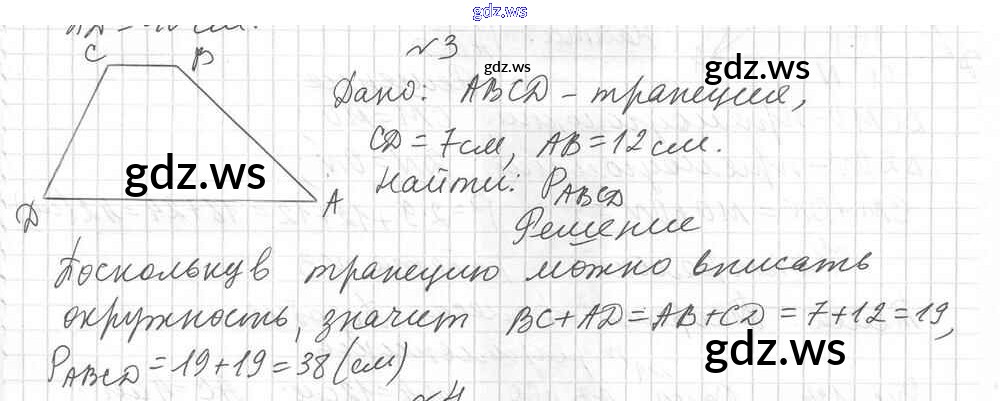 gdz.ws
N3
C B
Дано: ABCD – трапеция,
CD = 7 см, AB = 12 см.
Найти: P ABCD
D A
Решение
Поскольку в трапецию можно вписать
окружность, значит BC + AD = AB + CD = 7 + 12 = 19,
P ABCD = 19 + 19 = 38 (см)
N4
gdz.ws
gdz.ws
gdz.ws
gdz.ws